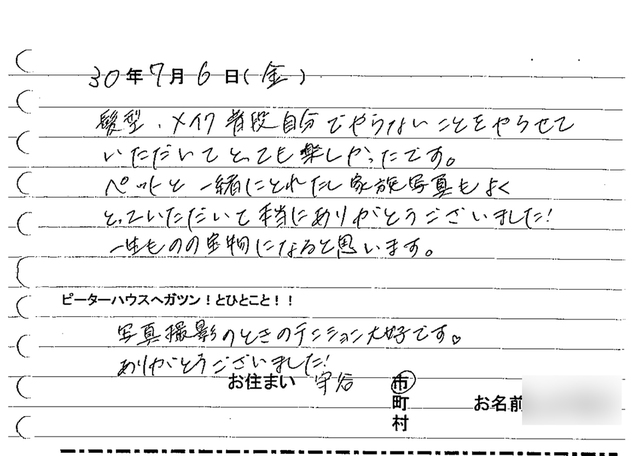 30年7月6日(金)
髪型、メイク普段自分でやらないことをやらせて
いただいてとっても楽しかったです。
ペットと一緒にとれたし家族写真もよく
とっていただいて本当にありがとうございました!
一生ものの宝物になると思います。
ピーターハウスへガツン!とひとこと!!
写真撮影のときのテンション大好です。
ありがとうございました!
お住まい 守谷 市
町
村
お名前